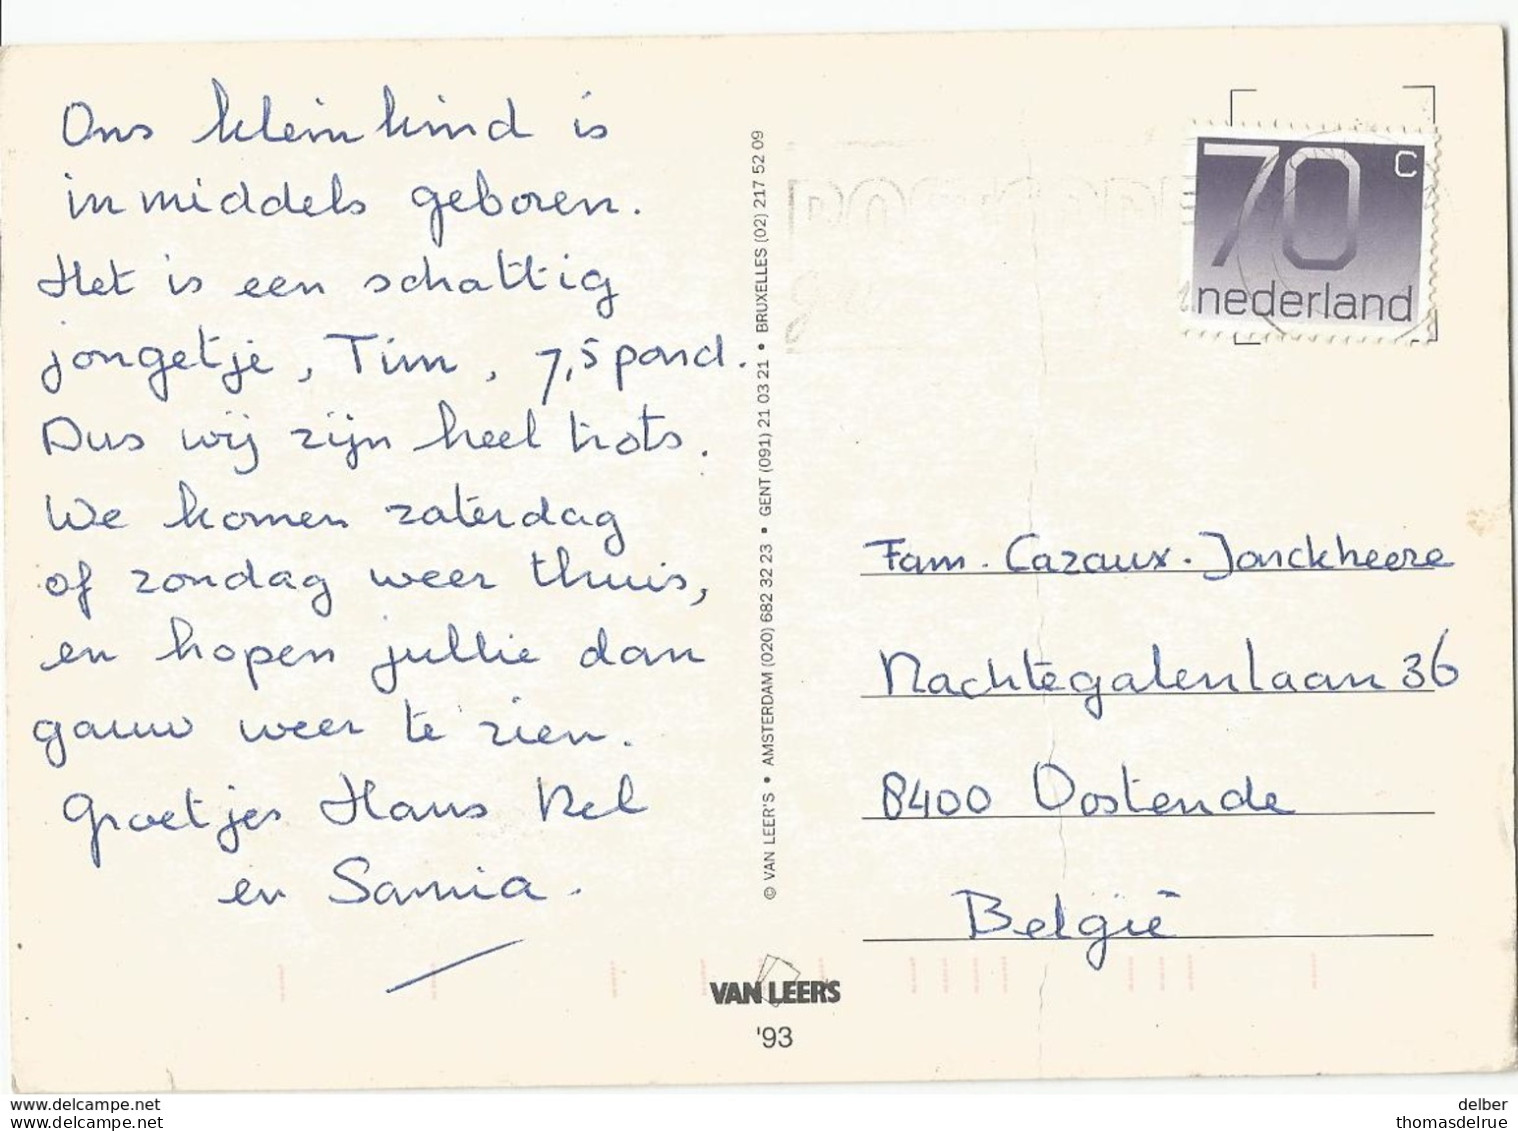 Ons kleinkind is
inmiddels geboren.
Het is een schattig
jongetje, Tim, 7,5 pond.
Dus wij zijn heel trots.
We komen zaterdag
of zondag weer thuis,
en hopen jullie dan
gauw weer te zien.
Groetjes Hans Nel
en Samia.
© VAN LEER'S • AMSTERDAM (020) 682 32 23 • GENT (091) 21 03 21 • BRUXELLES (02) 217 52 09
VAN LEER'S
'93
70 c
nederland
Fam. Cazaux-Jonckheere
Nachtegalenlaan 36
8400 Oostende
België
www.delcampe.net
www.delcampe.net
delber
thomasdelrue